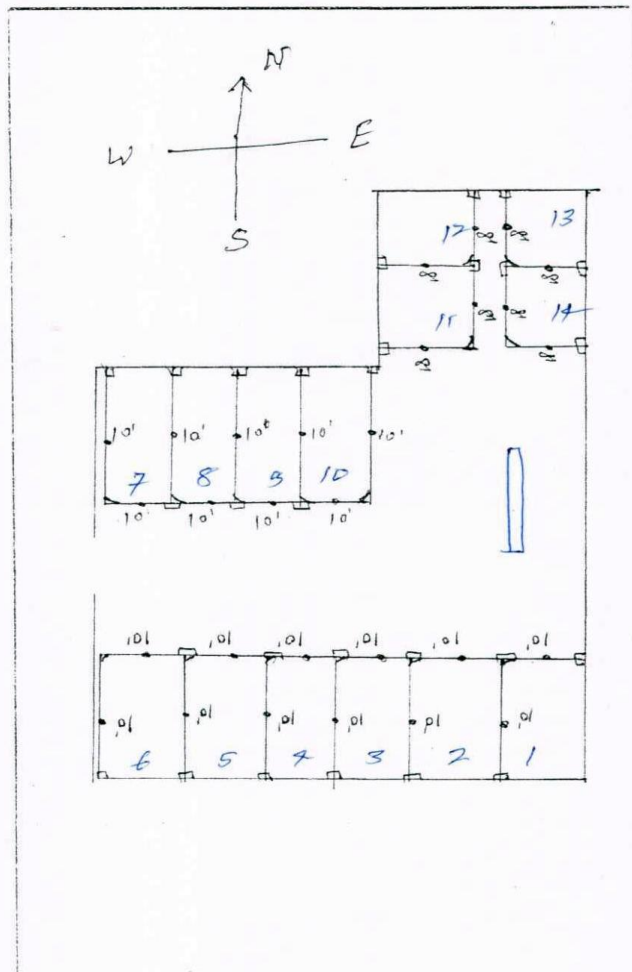 N
W E
S
12 13
8' 8'
8' 8'
8' 8'
11 14
8' 8'
10' 10' 10' 10' 10'
7 8 9 10
10' 10' 10' 10'
10' 10' 10' 10' 10' 10'
10' 10' 10' 10' 10'
10'
6 5 4 3 2 1